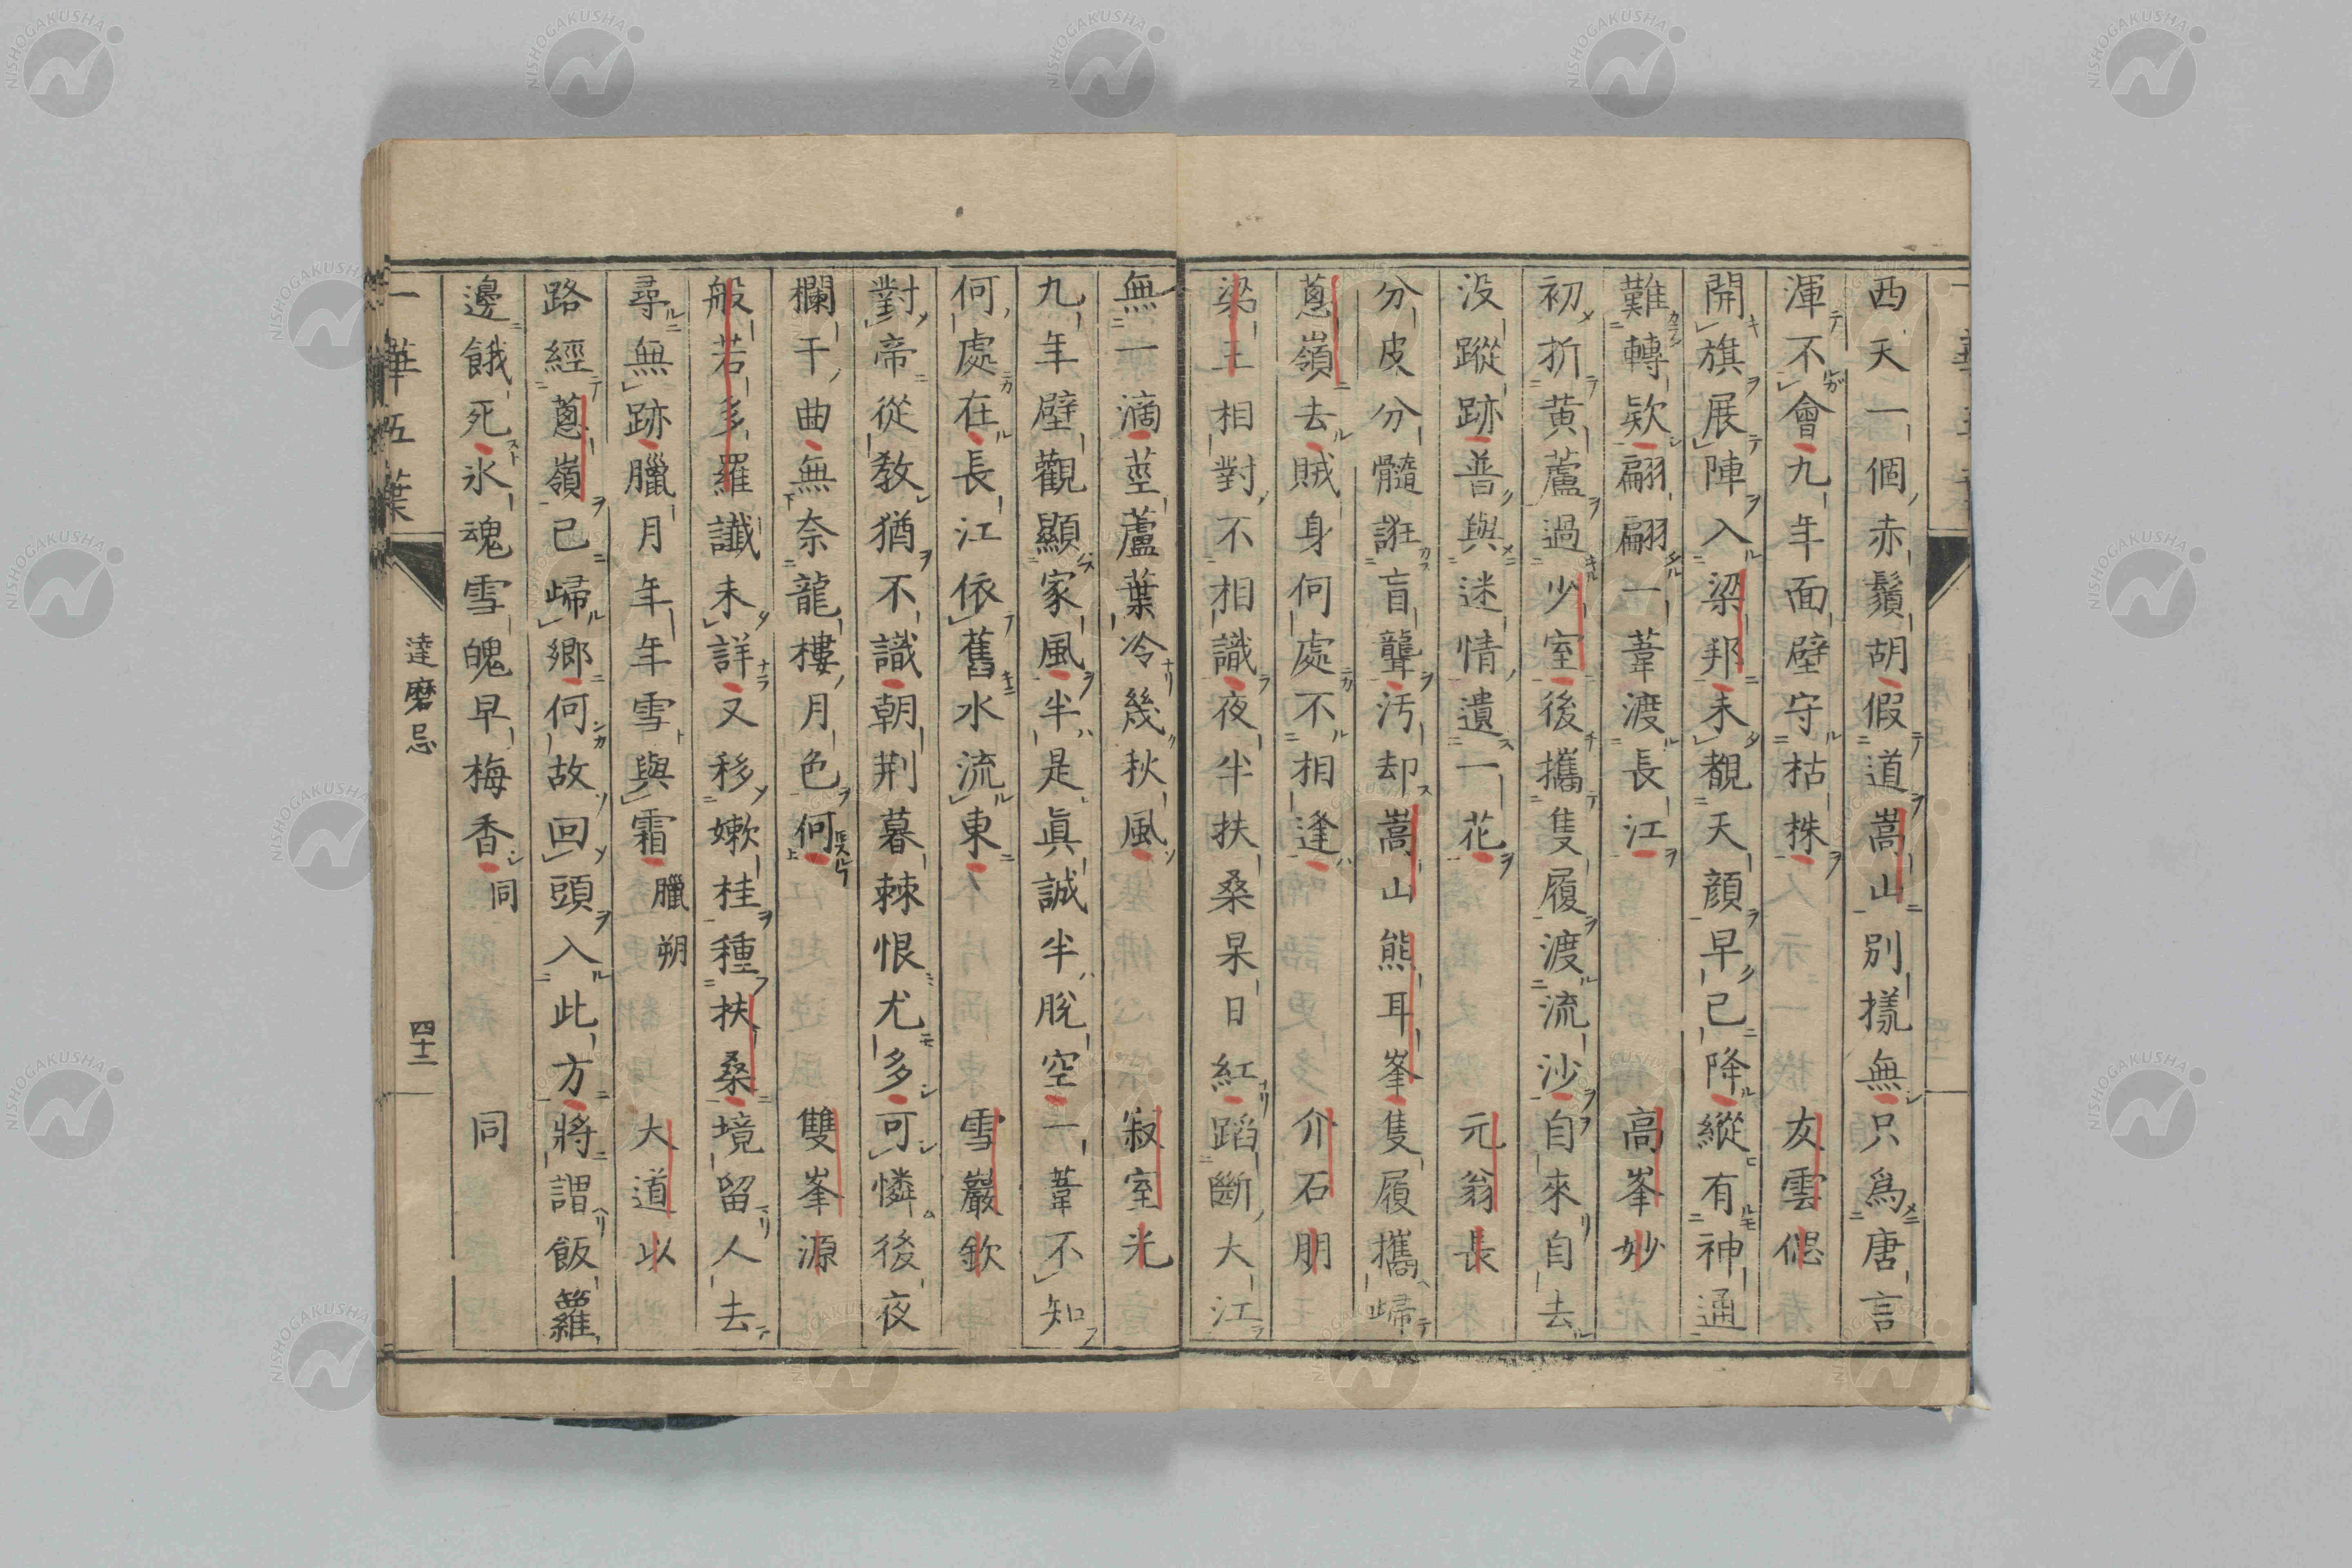 西天一個赤鬚胡假道嵩山別㨾無只爲唐言
渾不會九年面壁守枯株 友雲偲
開旗展陣入梁邦未覩天顔早已降縱有神通
難轉欵翩翩一葦渡長江 高峯妙
初折黄蘆過少室後攜隻履渡流沙自來自去
没蹤跡普與迷情遺一花 元翁長
分皮分髓誑盲聾汚却嵩山熊耳峯隻履攜歸
蔥嶺去賊身何處不相逢 介石朋
梁王相對不相識夜半扶桑杲日紅蹈斷大江
無一滴莖蘆葉冷幾秋風 寂室光
九年壁觀顯家風半是眞誠半脫空一葦不知
何處在長江依舊水流東 雪巖欽
對帝從教猶不識朝荆暮棘恨尤多可憐後夜
欄干曲無奈龍樓月色何 雙峯源
般若多羅讖未詳又移嫰桂種扶桑境留人去
尋無跡臘月年年雪與霜 臘朔 大道以
路經蔥嶺已歸鄉何故回頭入此方將謂飯籮
邊餓死氷魂雪魄早梅香 同 同
一華五葉
達磨忌
四十二